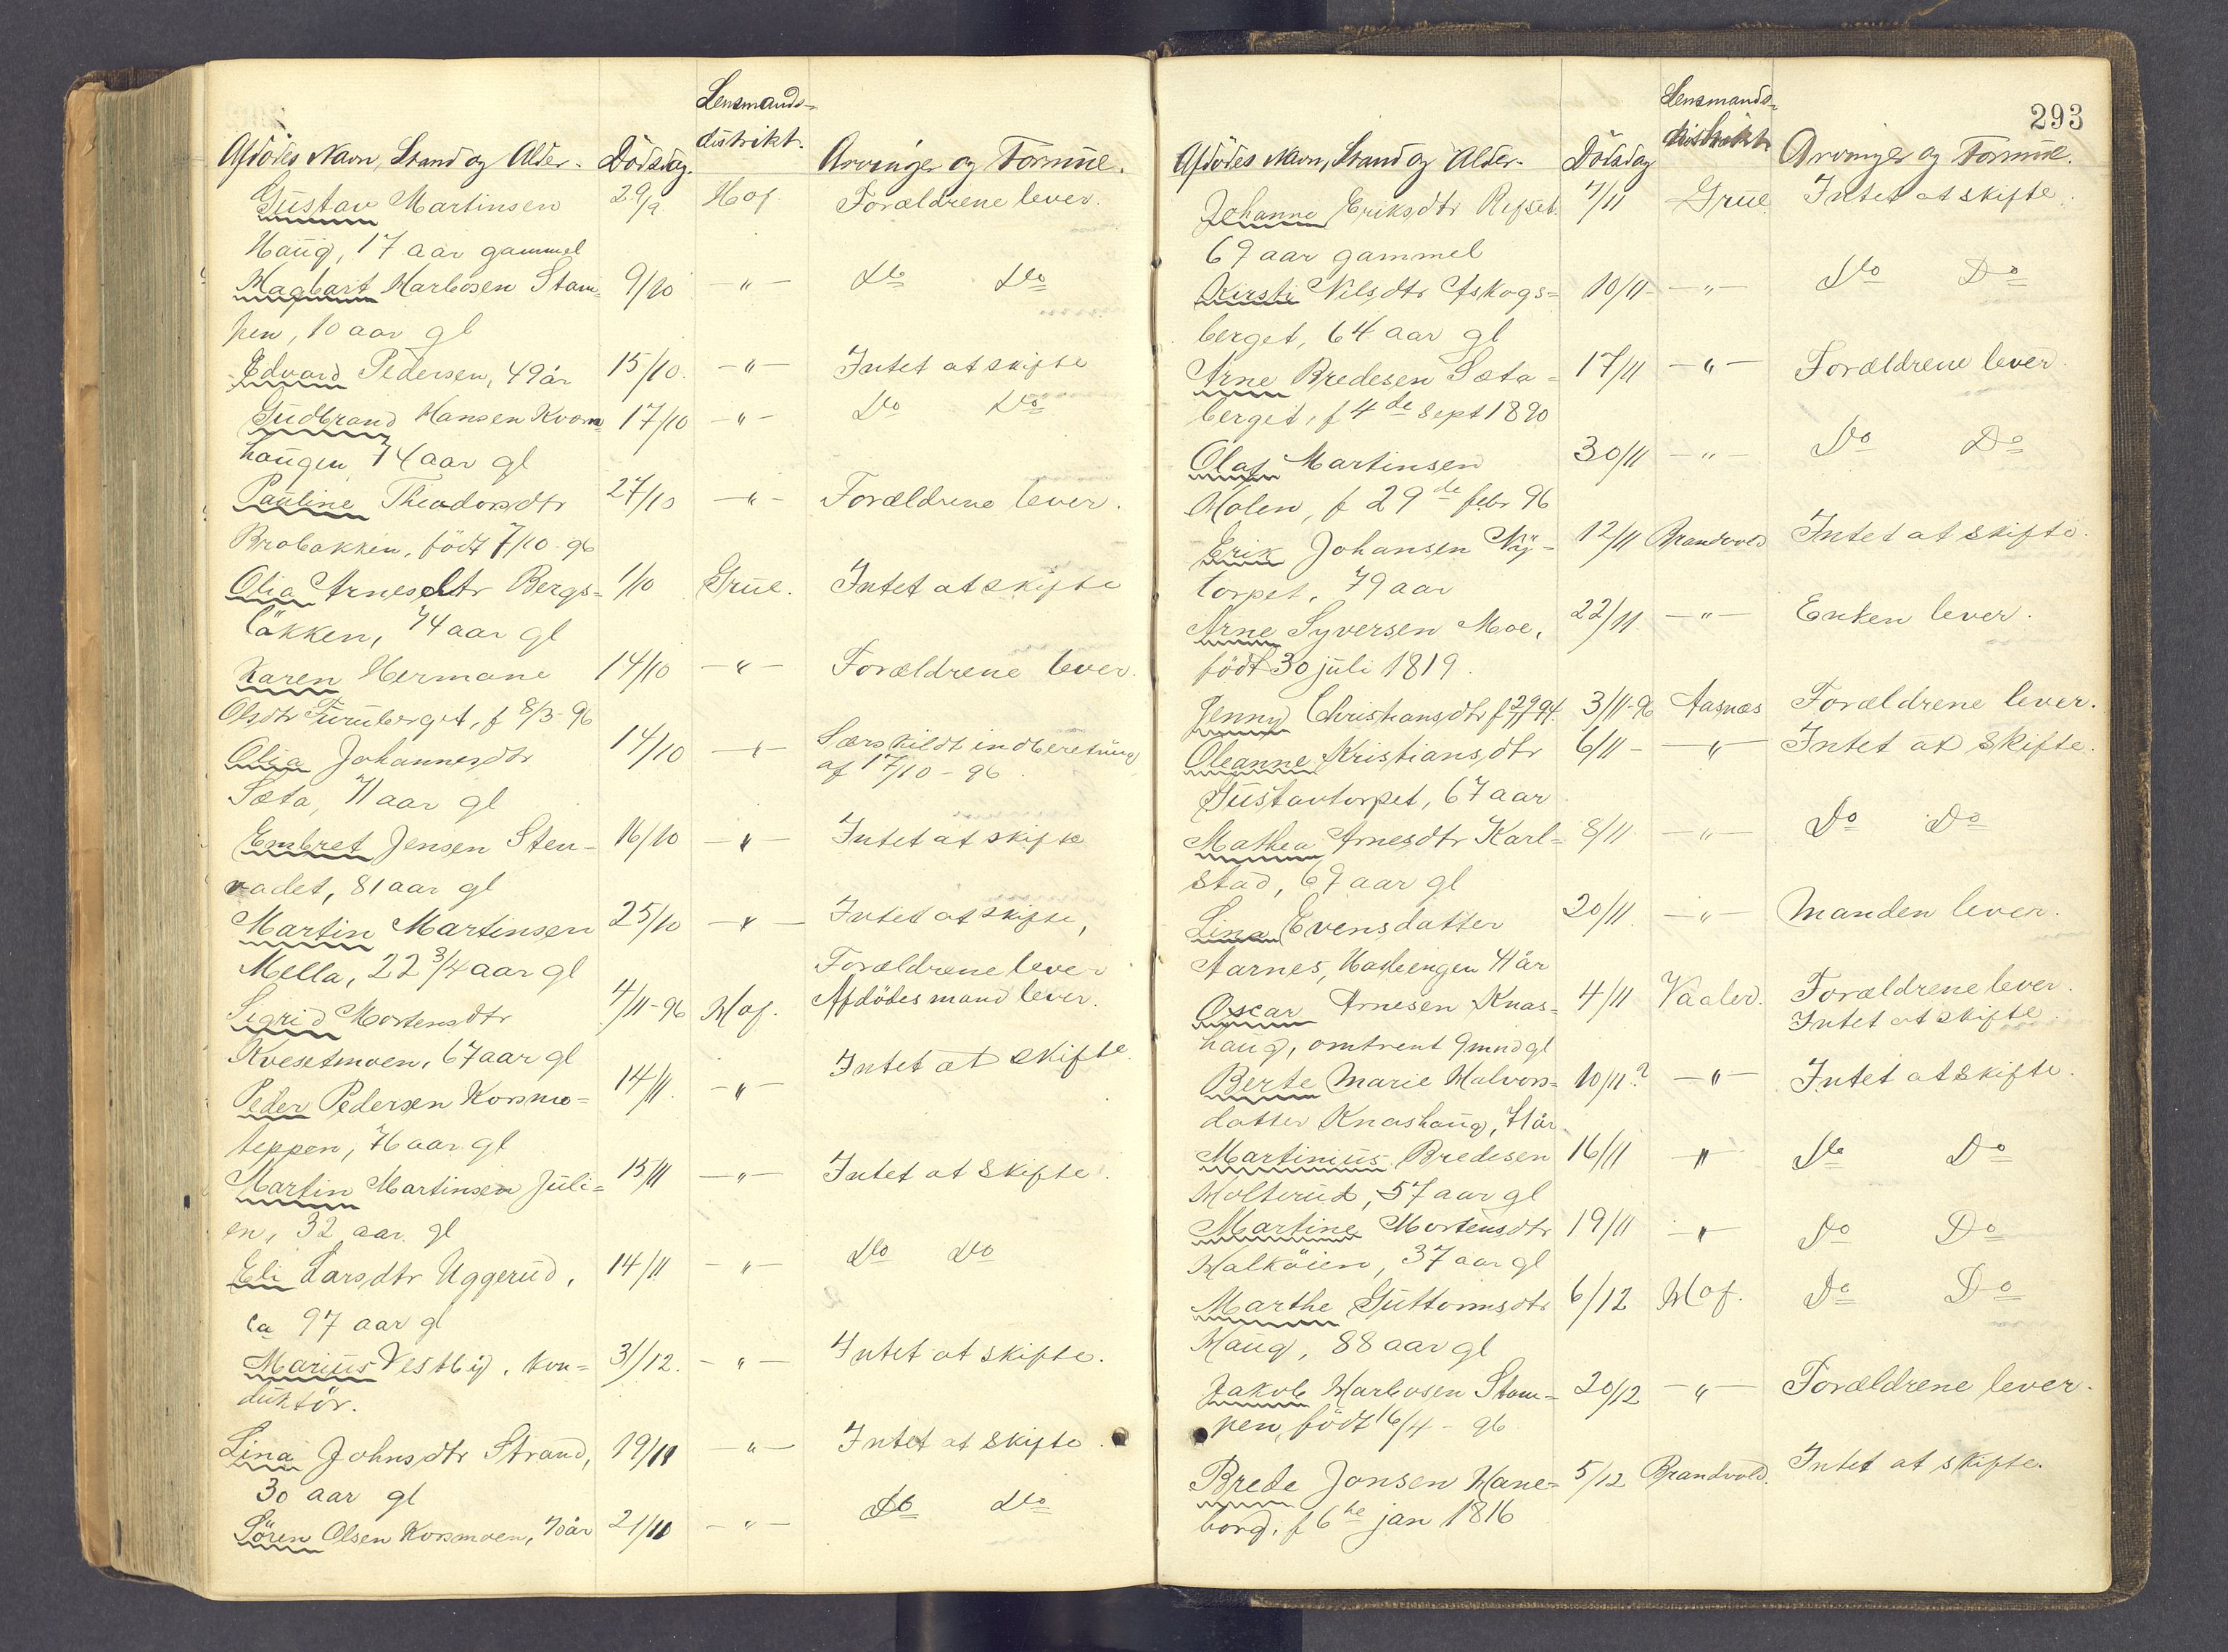 Lensmands-
distrikt.
Afdödes Navn, Stand og Alder. Dödsdag. Arvinger og Formue.
Gustav Martinsen 29/9 Hof. Forældrene lever.
Haug, 17 aar gammel
Hagbart Harbosen Stam= 9/10 —"— Do Do
pen, 10 aar gl
Edvard Pedersen, 49 år 15/10. —"— Intet at skifte
Gudbrand Hansen Kvorn= 17/10 —"— Do Do
haugen 74 aar gl
Pauline Theodorsdtr 27/10 —"— Forældrene lever.
Brobakken, födt 7/10-96
Olia Arnesdtr Bergs= 1/10 Grue. Intet at skifte
läkken, 74 aar gl
Karen Hermane 14/10 —"— Forældrene lever.
Olsdtr Furuberget, f 8/3-96
Olia Johannesdtr 14/10 —"— Særskildt indberetning
af 17/10-96.
Sæta, 71 aar gl
Embret Jensen Sten- 16/10 —"— Intet at skifte
vadet, 81 aar gl
Martin Martinsen 25/10 —"— Intet at skifte,
Mella, 22 3/4 aar gl Forældrene lever
Sigrid Mortensdtr 4/11-96 Hof. Afdödes mand lever.
Kvesetmoen, 67 aar gl
Peder Pedersen Korsmo= 14/11. —"— Intet at skifte
teppen, 76 aar gl
Martin Martinsen Juli= 15/11 —"— Intet at skifte.
en, 32 aar gl
Eli Larsdtr Uggerud, 14/11 —"— Do Do
ca 97 aar gl
Marius Vestby, kon= 3/12. —"— Intet at skifte.
duktör.
Lina Johnsdtr Strand, 19/11 —"— Intet at skifte.
30 aar gl
Sören Olsen Korsmoen, 70 år 21/11 —"— Do Do
293
Lensmands-
distrikt
Afdödes Navn, Stand og Alder. Dödsdag Arvinger og Formue.
Johanne Eriksdtr Repset. 7/11 Grue. Intet at skifte.
69 aar gammel
Kirsti Nilsdtr Askogs= 10/11 —"— Do Do
berget, 64 aar gl
Arne Bredesen Sæta= 17/11 —"— Forældrene lever
berget, f 4de Sept 1890
Olaf Martinsen 30/11 —"— Do Do
Molen, f 29de febr 96
Erik Johansen Ny- 12/11 Brandvold Intet at skifte.
torpet, 79 aar
Arne Syversen Moe, 22/11 —"— Enken lever.
födt 30 juli 1819.
Jenny Christiansdtr f 29/7 94. 3/11-96 Aasnæs Forældrene lever.
Oleanne Kristiansdtr 6/11 —"— Intet at skifte.
Gustavtorpet, 67 aar
Mathea Arnesdtr Karl= 8/11 —"— Do Do
stad, 67 aar gl
Lina Evensdatter 20/11 —"— Manden lever.
Aarnes, 41 år
Oscar Arnesen Knas= 4/11 Vaaler. Forældrene lever.
Intet at skifte.
haug, omtrent 9 mnd gl
Berte Marie Halvors= 10/11? —"— Intet at skifte.
datter Knashaug, 71 år
Martinius Bredesen 16/11 —"— Do Do
Holterud, 57 aar gl
Martine Mortensdtr 19/11 —"— Do Do
Kalköien, 37 aar gl
Marthe Guttormsdtr 6/12 Hof. Do Do
Haug, 88 aar gl
Jakob Harbosen Stam= 20/12 —"— Forældrene lever.
pen, födt 16/4-96
Brede Jonsen Hane= 5/12 Brandvold. Intet at skifte.
borg, f 6te jan 1816